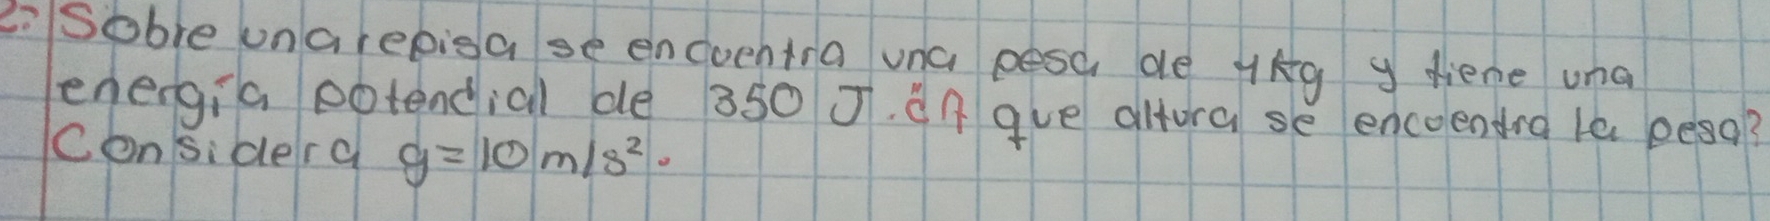 2: Sobre una repisa se encuentra una pesa de 4Kg y tiene una
energía potencial de 350 J. ¿A que altura se encuentra la pesa?
Considera g=10 m/s².